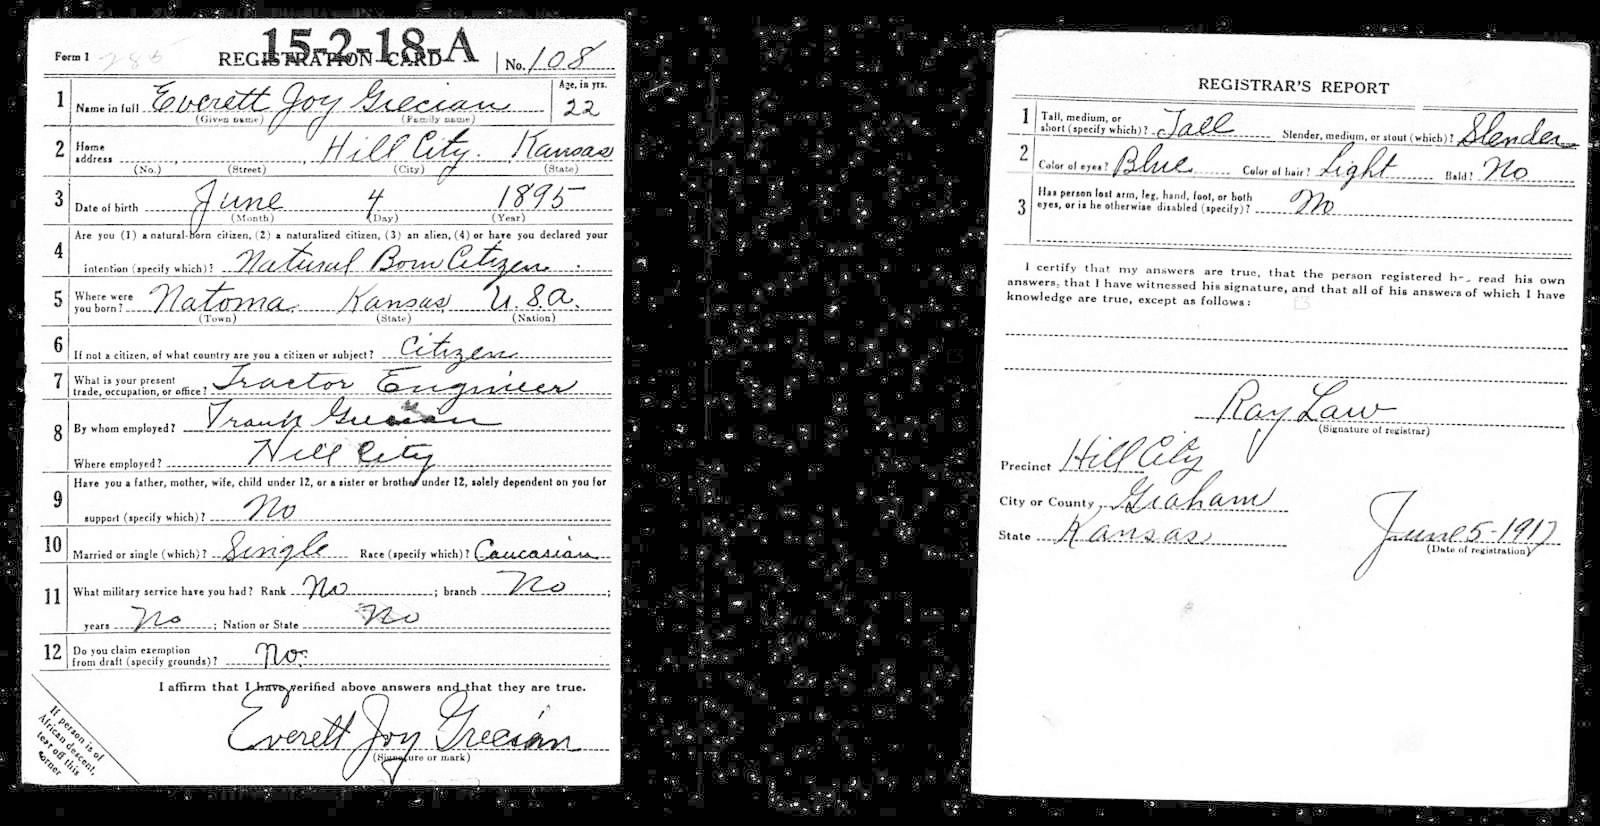 15-2-18-A
Form 1 286 REGISTRATION CARD No. 108
1 Name in full Everett Joy Grecian Age, in yrs. 22
(Given name) (Family name)
2 Home address Hill City. Kansas
(No.) (Street) (City) (State)
3 Date of birth June 4 1895
(Month) (Day) (Year)
4 Are you (1) a natural-born citizen, (2) a naturalized citizen, (3) an alien, (4) or have you declared your
intention (specify which)? Natural Born Citizen.
5 Where were you born? Natoma Kansas U.S.A.
(Town) (State) (Nation)
6 If not a citizen, of what country are you a citizen or subject? Citizen
7 What is your present trade, occupation, or office? Tractor Engineer
8 By whom employed? Frank Grecian
Where employed? Hill City
9 Have you a father, mother, wife, child under 12, or a sister or brother under 12, solely dependent on you for
support (specify which)? No
10 Married or single (which)? Single Race (specify which)? Caucasian
11 What military service have you had? Rank No ; branch No ;
years No ; Nation or State No
12 Do you claim exemption from draft (specify grounds)? No.
I affirm that I have verified above answers and that they are true.
Everett Joy Grecian
(Signature or mark)
If person is of
African descent,
tear off this
corner
REGISTRAR'S REPORT
1 Tall, medium, or short (specify which)? Tall Slender, medium, or stout (which)? Slender
2 Color of eyes? Blue Color of hair? Light Bald? No
3 Has person lost arm, leg, hand, foot, or both
eyes, or is he otherwise disabled (specify)? No
I certify that my answers are true, that the person registered has read his own
answers, that I have witnessed his signature, and that all of his answers of which I have
knowledge are true, except as follows:
Ray Law
(Signature of registrar)
Precinct Hill City
City or County Graham
State Kansas
June 5-1917
(Date of registration)